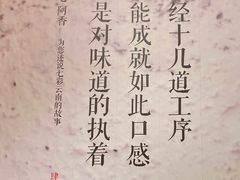 经十几道工序
能成就如此口感
是对味道的执着
为您述说七彩云南的故事
阿香
肆